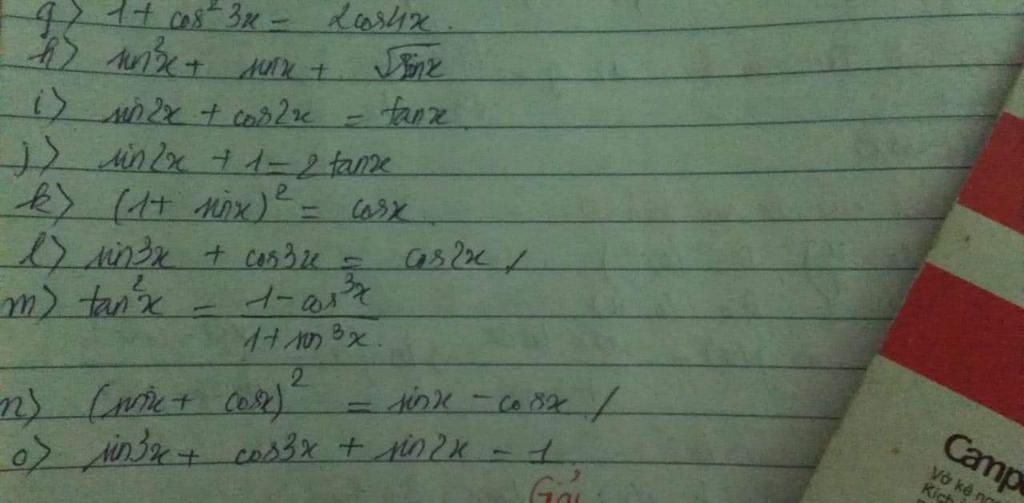 g) 1 + cos²3x = 2cos4x.
h) sin³x + sinx + √sinx
i) sin2x + cos2x = tanx.
j) sin2x + 1 = 2tanx
k) (1 + sinx)² = cosx.
l) sin3x + cos3x = cos2x /
m) tan²x = (1 - cos³x)/(1 + sin³x).
n) (sinx + cosx)² = sinx - cosx /
o) sin3x + cos3x + sin2x = 1.
Giải
Camp
Vở kẻ
Kích